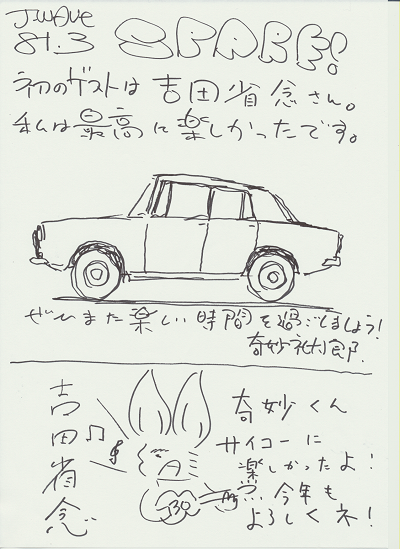 J-WAVE
81.3 SPARK!
初のゲストは吉田省念さん。
私は最高に楽しかったです。
ぜひまた楽しい時間を過ごしましょう!
奇妙礼太郎
吉田省念
奇妙くん
サイコーに
楽しかったよ!
今年も
よろしくネ!